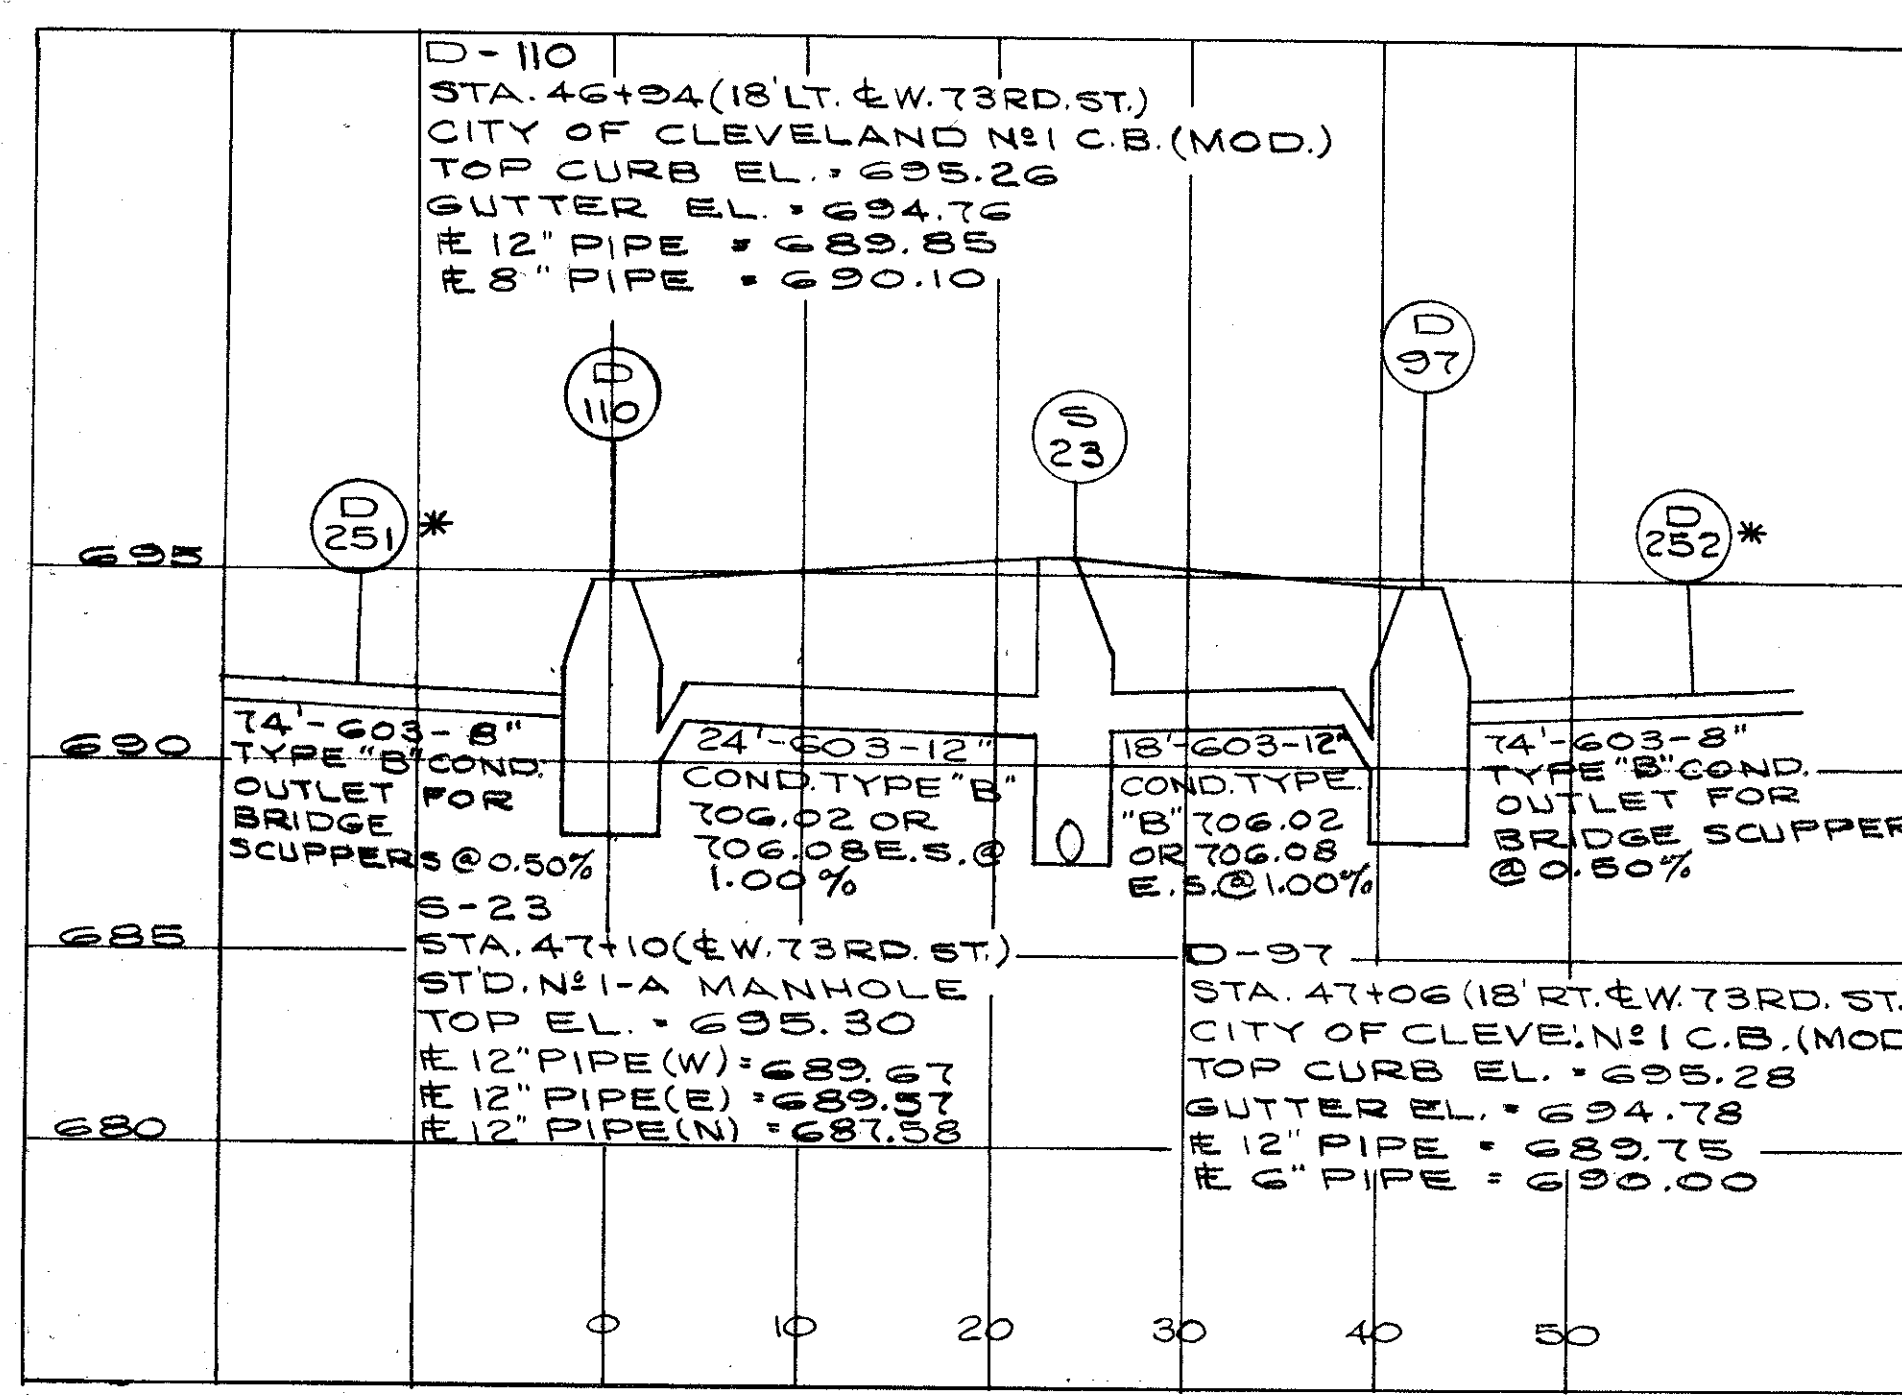 D-110
STA. 46+94 (18' LT. ℄ W. 73RD. ST.)
CITY OF CLEVELAND Nº 1 C.B. (MOD.)
TOP CURB EL. = 695.26
GUTTER EL. = 694.76
12" PIPE = 689.85
8" PIPE = 690.10
D
110
D
97
S
23
D
251 *
D
252 *
695
690
685
680
74'-603-8"
TYPE "B" COND.
OUTLET FOR
BRIDGE
SCUPPERS @ 0.50%
24'-603-12"
COND. TYPE "B"
706.02 OR
706.08 E.S. @
1.00%
18'-603-12"
COND. TYPE
"B" 706.02
OR 706.08
E.S. @ 1.00%
74'-603-8"
TYPE "B" COND.
OUTLET FOR
BRIDGE SCUPPER
@ 0.50%
S-23
STA. 47+10 (℄ W. 73RD. ST.)
ST'D. Nº 1-A MANHOLE
TOP EL. = 695.30
12" PIPE (W) = 689.67
12" PIPE (E) = 689.57
12" PIPE (N) = 687.58
D-97
STA. 47+06 (18' RT. ℄ W. 73RD. ST.
CITY OF CLEVE. Nº 1 C.B. (MOD
TOP CURB EL. = 695.28
GUTTER EL. = 694.78
12" PIPE = 689.75
6" PIPE = 690.00
0 10 20 30 40 50